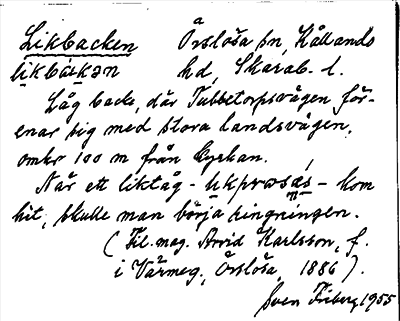 Likbacken Örslösa sn, Kållands
likbákən hd, Skarab. l.
Låg backe, där Tubbetorpsvägen för-
enar sig med stora landsvägen,
omkr 100 m från kyrkan.
När ett liktåg - - kom
hit, skulle man börja ringningen.
(Fil. mag. Arvid Karlsson, f.
i Värmeg, Örslösa, 1886).
Sven Friberg, 1955